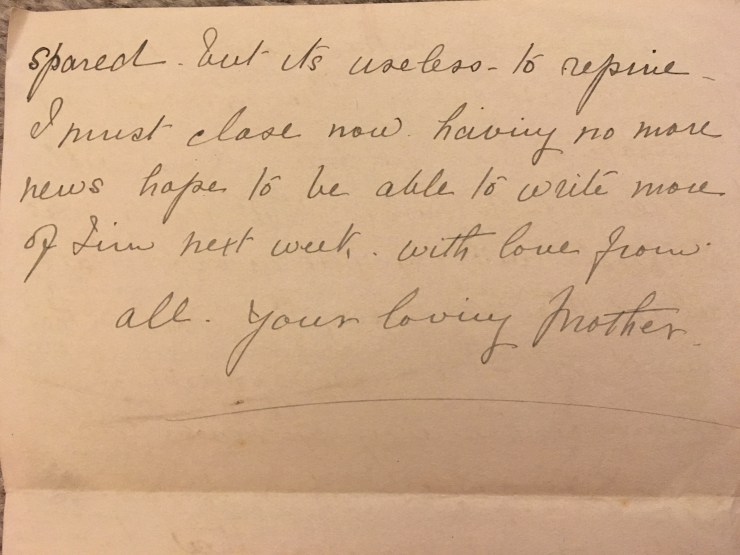 spared. but its useless - to repine -
I must close now. having no more
news hope to be able to write more
of Jim next week. with love from
all. Your loving Mother.